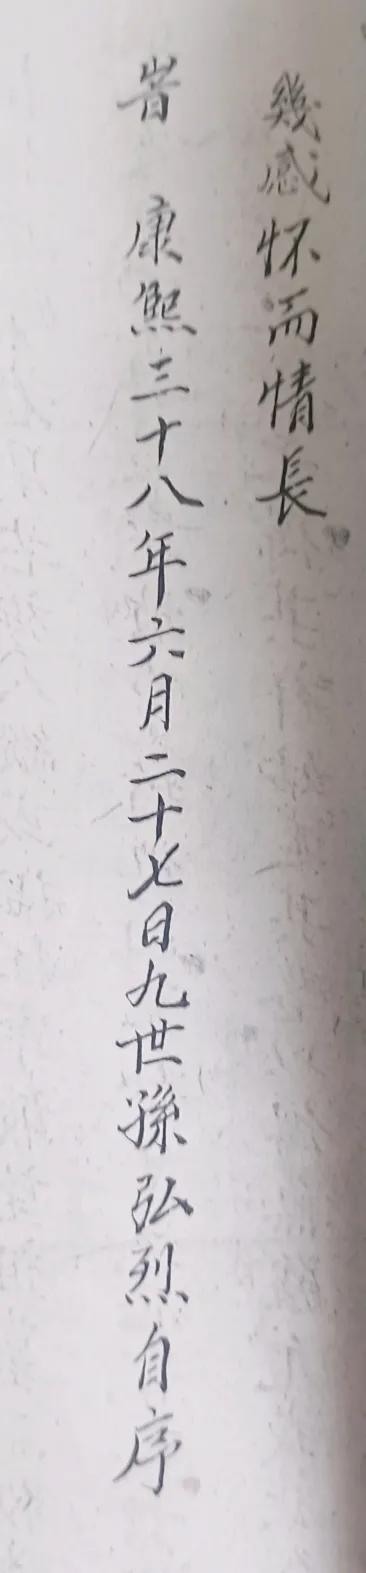 幾感怀而情長
旹 康熙三十八年六月二十七日九世孫弘烈自序